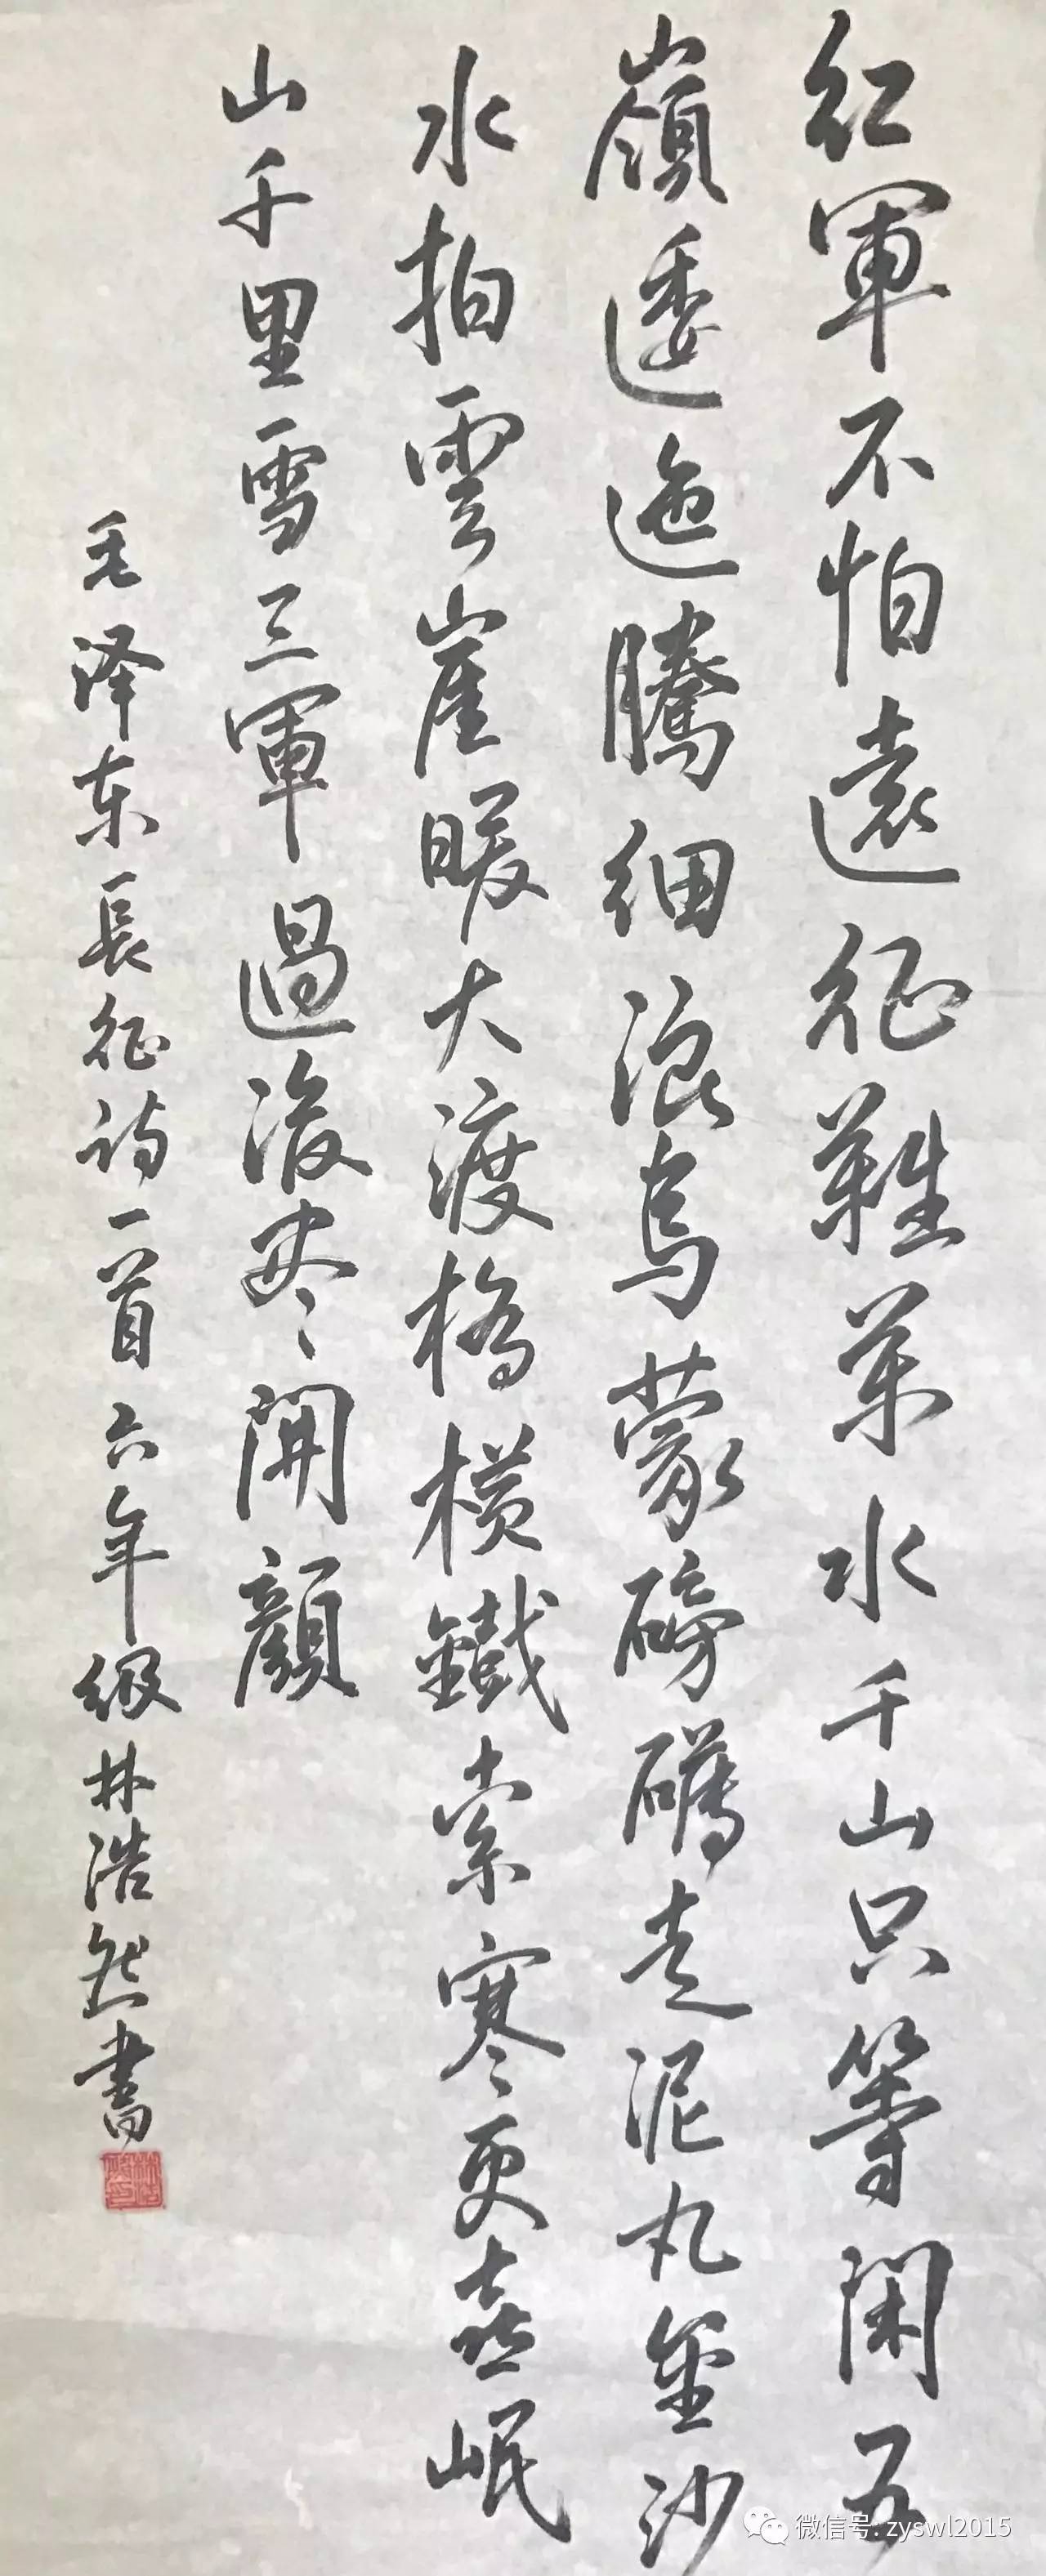 紅軍不怕遠征難萬水千山只等閑五
嶺逶迤騰細浪烏蒙磅礴走泥丸金沙
水拍雲崖暖大渡橋横鐵索寒更喜岷
山千里雪三軍過後尽開顏
毛泽东長征诗一首六年级林浩然書
微信号: zyswl2015